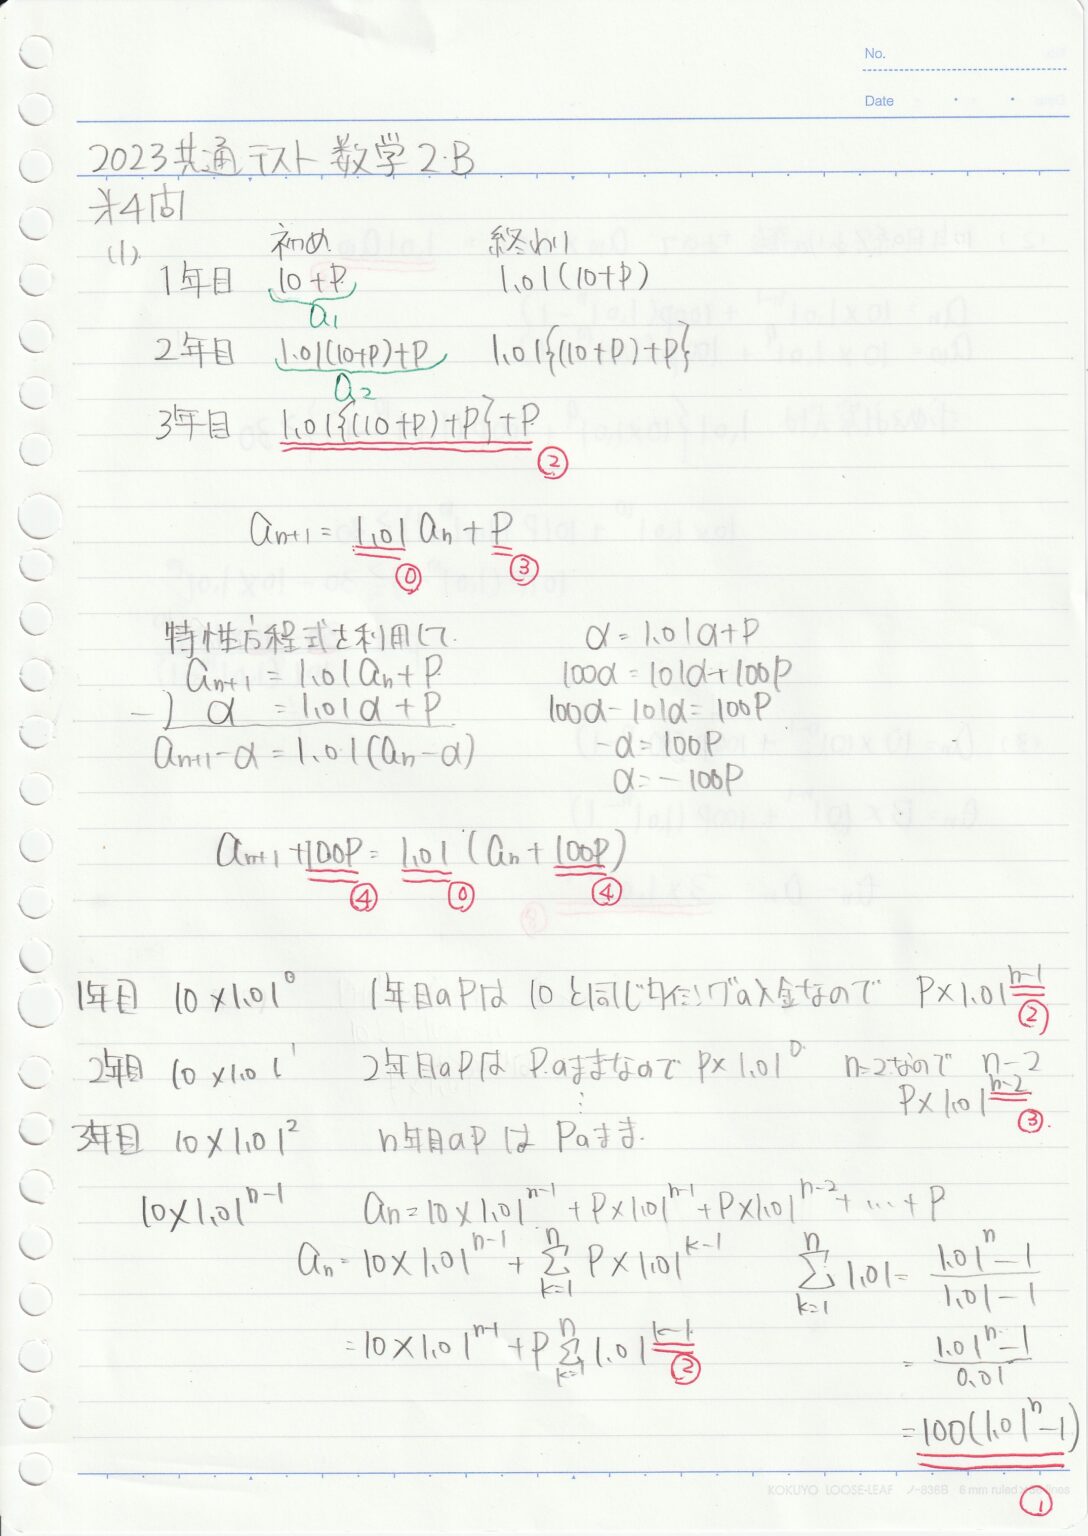 No.
Date
2023共通テスト 数学2・B
第4問
(1). 初め 終わり
1年目 10+P 1.01(10+P)
a1
2年目 1.01(10+P)+P 1.01{(10+P)+P}
a2
3年目 1.01{(10+P)+P}+P
②
an+1 = 1.01 an + P
⓪ ③
特性方程式を利用して. α = 1.01α+P
an+1 = 1.01an+P 100α = 101α+100P
-) α = 1.01α+P 100α-101α = 100P
an+1-α = 1.01(an-α) -α = 100P
α = -100P
an+1+100P = 1.01 (an+100P)
④ ⓪ ④
1年目 10×1.01^0 1年目のPは10と同じタイミングの入金なので P×1.01^n-1
②
2年目 10×1.01^1 2年目のPはPのままなので P×1.01^0 n=2なので n-2
⋮ P×1.01^n-2
③.
3年目 10×1.01^2 n年目のPはPのまま.
10×1.01^n-1 an=10×1.01^n-1+P×1.01^n-1+P×1.01^n-2+…+P
an=10×1.01^n-1+Σ_{k=1}^{n} P×1.01^k-1 Σ_{k=1}^{n} 1.01 = (1.01^n-1)/(1.01-1)
=10×1.01^n-1+PΣ_{k=1}^{n} 1.01^k-1 = (1.01^n-1)/0.01
②
=100(1.01^n-1)
①
KOKUYO LOOSE-LEAF ノ-836B 6 mm ruled